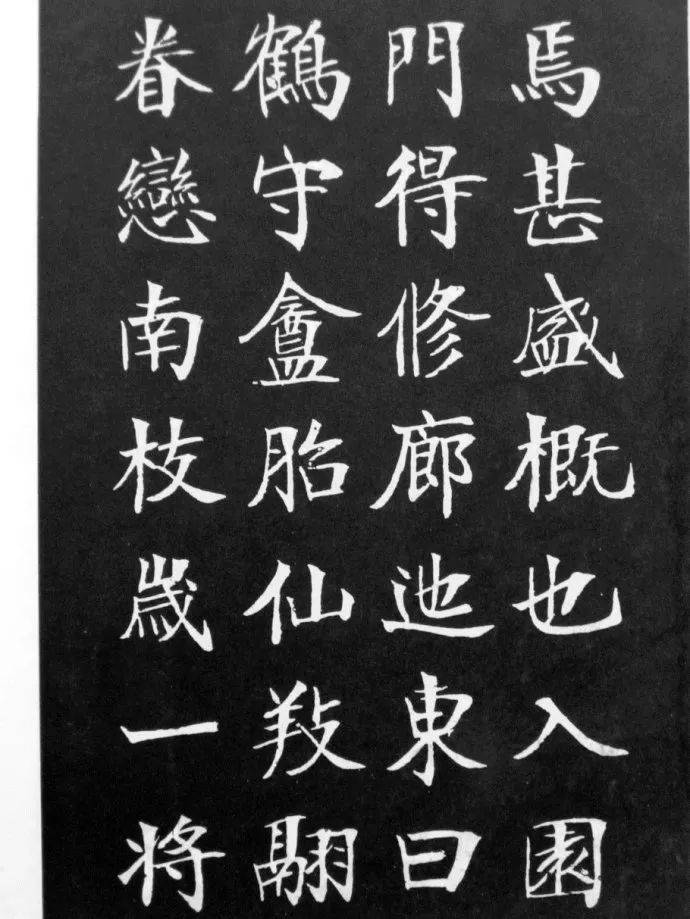 焉甚盛概也入園
門得修廊迆東曰
鶴守盦胎仙翮
眷戀南枝歲一將